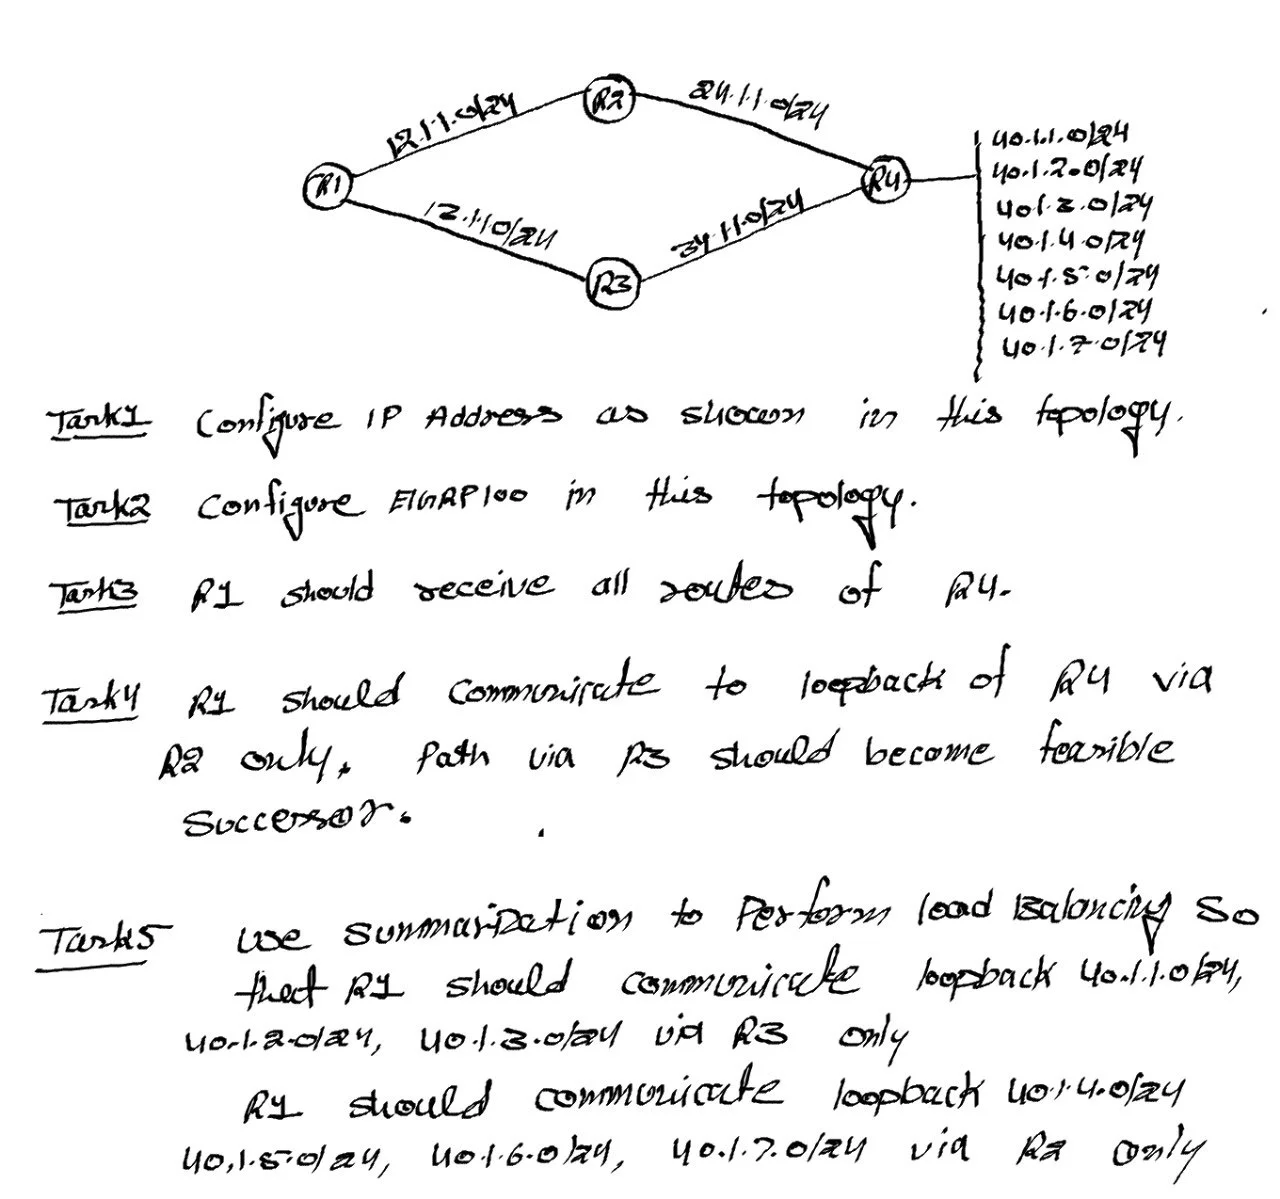 R2
12.1.1.0/24
24.1.1.0/24
R1
R4
40.1.1.0/24
40.1.2.0/24
40.1.3.0/24
40.1.4.0/24
40.1.5.0/24
40.1.6.0/24
40.1.7.0/24
.1.1.0/24
34.1.1.0/24
R3
Task1 Configure IP Address as shown in this topology.
Task2 Configure EIGRP100 in this topology.
Task3 R1 should receive all routes of R4.
Task4 R1 should communicate to loopback of R4 via
R2 only. Path via R3 should become feasible
Successor.
Task5 use summarization to Perform load Balancing So
that R1 should communicate loopback 40.1.1.0/24,
40.1.2.0/24, 40.1.3.0/24 via R3 only
R1 should communicate loopback 40.1.4.0/24
40.1.5.0/24, 40.1.6.0/24, 40.1.7.0/24 via R2 only